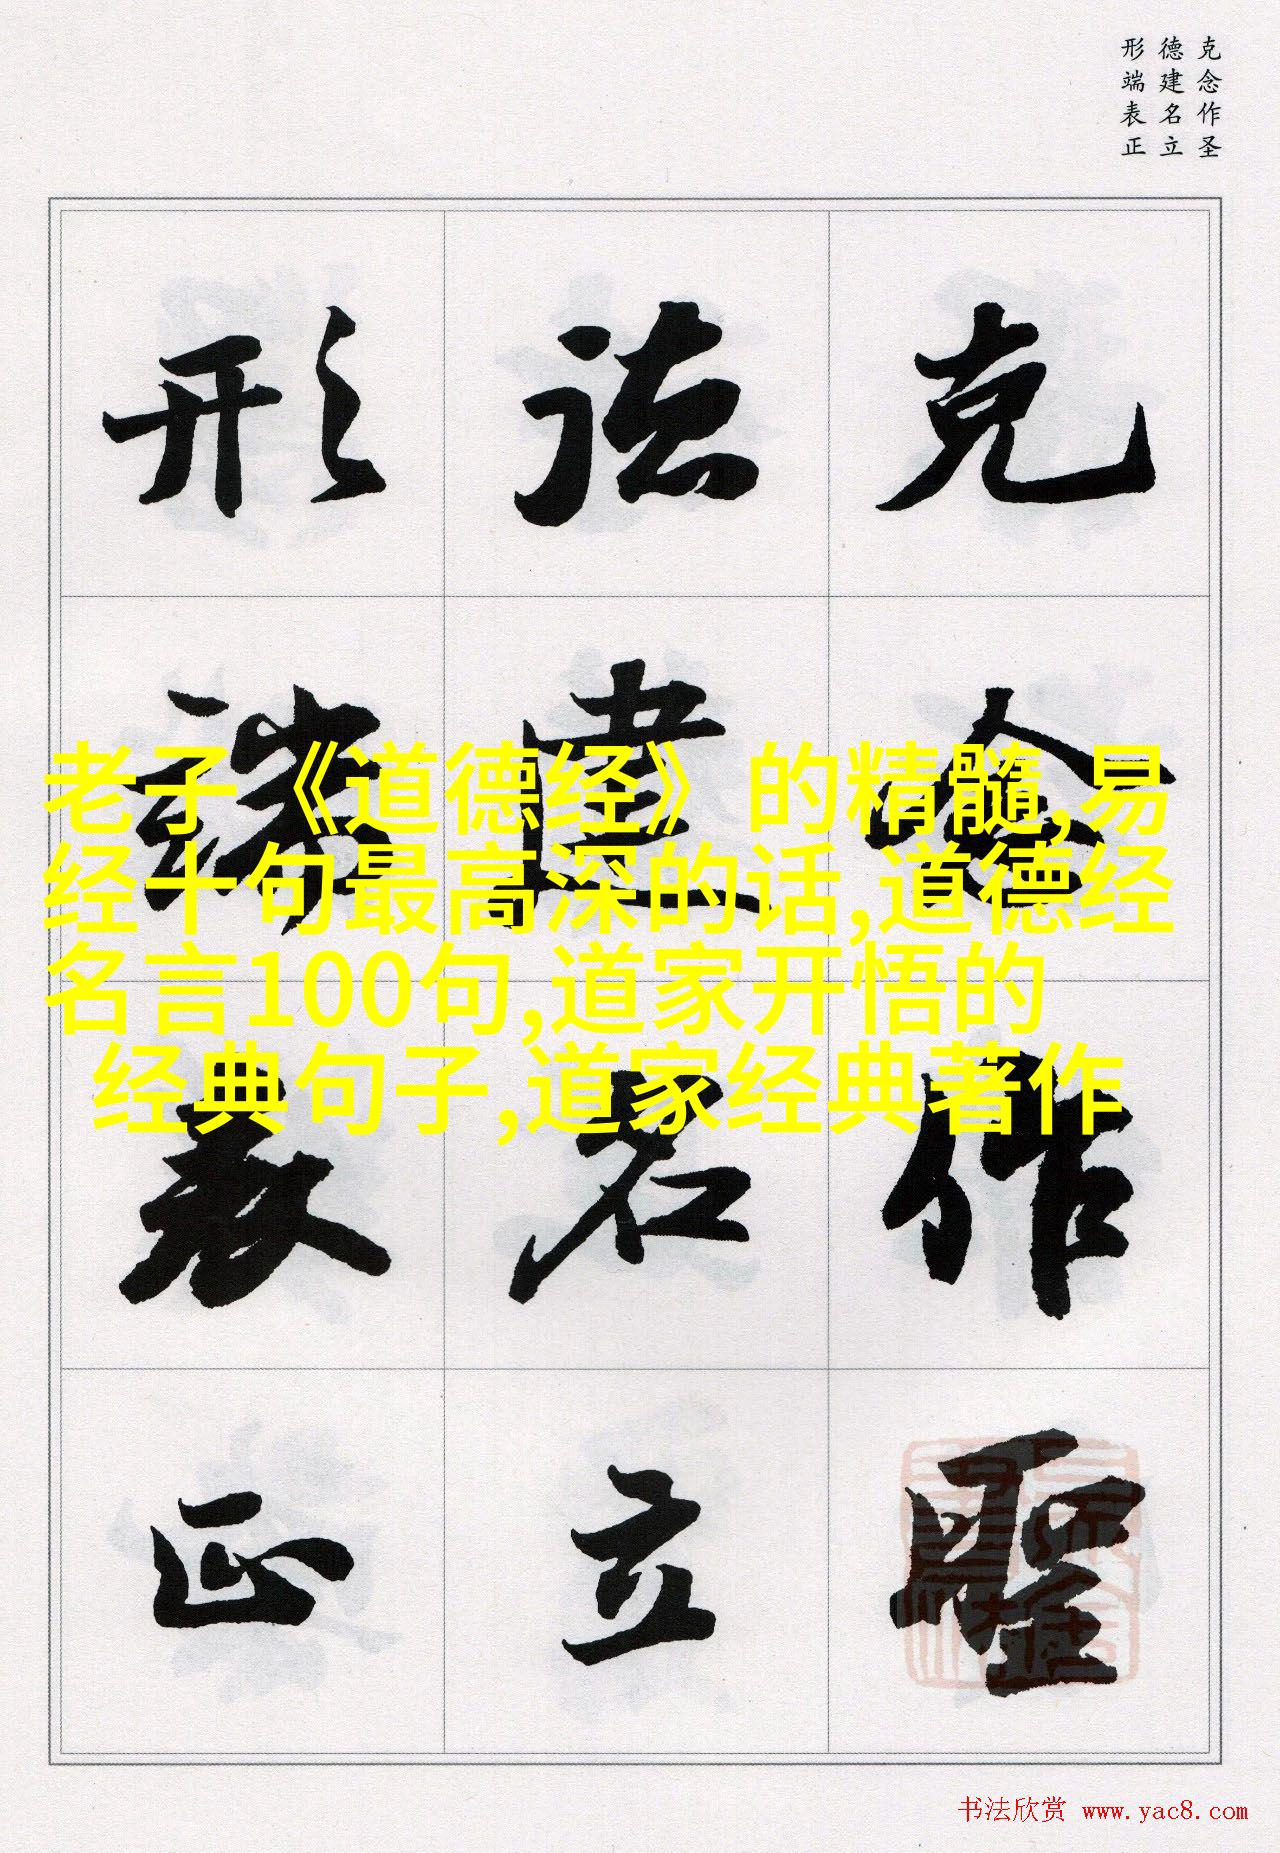 克念作圣
德建名立
形端表正
克念作聖
德建名立
形端表正
老子《道德经》的精髓,易
经十句最高深的话,道德经
名言100句,道家开悟的
经典句子,道家经典著作
书法欣赏 www.yac8.com